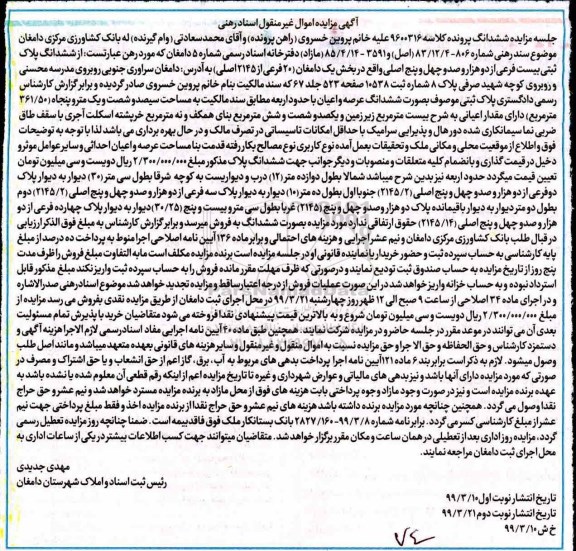 آگهی مزایده اموال غیرمنقول اسناد رهنی
جلسه مزایده ششدانگ پرونده کلاسه ۹۶۰۰۳۱۶ علیه خانم پروین خسروی (راهن پرونده) و آقای محمد سعادتی (وام گیرنده) له بانک کشاورزی مرکزی دامغان
موضوع سند رهنی شماره ۸۰۶-۸۳/۱۲/۴ (اصل) و ۳۵۹۱-۸۵/۴/۱۴ (مازاد) دفترخانه اسناد رسمی شماره ۵ دامغان که مورد رهن عبارتست؛ از ششدانگ پلاک
ثبتی بیست فرعی از دو هزار و صد و چهل و پنج اصلی واقع در بخش یک دامغان (۲۰ فرعی از ۲۱۴۵ اصلی) به آدرس: دامغان سراوری جنوبی روبروی مدرسه محسنی
و روبروی کوچه شهید صرفی پلاک ۸ شماره ثبت ۱۰۵۳۸ صفحه ۵۲۳ جلد ۶۷ که سند مالکیت بنام خانم پروین خسروی صادر گردیده و برابر گزارش کارشناس
رسمی دادگستری پلاک ثبتی موصوف بصورت ششدانگ عرصه و اعیان با حدود اربعه مطابق سند مالکیت به مساحت سیصد و شصت و یک متر و پنجاه (۳۶۱/۵۰
مترمربع) دارای مقدار اعیانی به شرح بیست مترمربع زیرزمین و یکصد و شصت و شش مترمربع بنای همکف و نه مترمربع خرپشته اسکلت آجری با سقف طاق
ضربی نما سیمانکاری شده دور هال و پذیرایی سرامیک با حداقل امکانات تاسیساتی در تصرف مالک و در حال بهره برداری می باشد لذا با توجه به توضیحات
فوق و اطلاع از موقعیت محلی و مکانی ملک و تحقیقات بعمل آمده نوع کاربری نوع مصالح بکار رفته قدمت بنا مساحت عرصه و اعیان احداثی و سایر عوامل موثر و
دخیل در قیمت گذاری و بانضمام کلیه متعلقات و منصوبات و دیگر جوانب جهت ششدانگ پلاک مذکور مبلغ ۲/۳۰۰/۰۰۰/۰۰۰ ریال دویست و سی میلیون تومان
تعیین قیمت میگردد حدود اربعه نیز بدین شرح میباشد شمالا بطول دوازده متر (۱۲) درب و دیواریست به کوچه شرقا بطول سی متر (۳۰) دیوار به دیوار پلاک
دو فرعی از دو هزار و صد و چهل و پنج اصلی (۲۱۴۵/۲) جنوبا اول بطول ده متر (۱۰) دیوار به دیوار پلاک سه فرعی از دو هزار و صد و چهل و پنج اصلی (۲۱۴۵/۲) دوم
بطول دو متر دیوار به دیوار باقیمانده پلاک دو هزار و صد و چهل و پنج (۲۱۴۵) غربا بطول سی متر و بیست و پنج (۳۰/۲۵) دیوار به دیوار پلاک چهارده فرعی از دو
هزار و صد و چهل و پنج اصلی (۲۱۴۵/۱۴) حقوق ارتفاقی ندارد مورد مزایده بصورت ششدانگ به فروش میرسد و برابر گزارش کارشناس به مبلغ فوق الذکر ارزیابی
در قبال طلب بانک کشاورزی مرکزی دامغان و نیم عشر اجرایی و هزینه های احتمالی و برابر ماده ۱۳۶ آیین نامه اصلاحی اجرا منوط به پرداخت ده درصد از مبلغ
پایه کارشناسی به حساب سپرده ثبت و حضور خریدار یا نماینده قانونی او در جلسه مزایده است برنده مزایده مکلف است مابه التفاوت مبلغ فروش را ظرف مدت
پنج روز از تاریخ مزایده به حساب صندوق ثبت تودیع نمایند و در صورتی که ظرف مهلت مقرر مانده فروش را به حساب سپرده ثبت واریز نکند مبلغ مذکور قابل
استرداد نبوده و به حساب خزانه واریز خواهد شد در این صورت عملیات فروش از درجه اعتبار ساقط و مزایده تجدید خواهد شد موضوع اسناد رهنی صدرالاشاره
و در اجرای ماده ۳۴ اصلاحی از ساعت ۹ صبح الی ۱۲ ظهر روز چهارشنبه ۹۹/۳/۲۱ در محل اجرای ثبت دامغان از طریق مزایده نقدی بفروش می رسد مزایده از
مبلغ ۲/۳۰۰/۰۰۰/۰۰۰ ریال دویست و سی میلیون تومان شروع و به بالاترین قیمت پیشنهادی نقدا فروخته می شود متقاضیان خرید با پذیرش تمام مسئولیت
بعدی آن می توانند در موعد مقرر در جلسه حاضر و در مزایده شرکت نمایند. همچنین طبق ماده ۴۰ آیین نامه اجرایی مفاد اسناد رسمی لازم الاجرا هزینه آگهی و
دستمزد کارشناس و حق الحفاظه و حق الاجرا و حق مزایده نسبت به اموال منقول و غیرمنقول و سایر هزینه های قانونی بعهده متعهد میباشد و مانند اصل طلب
وصول میشود. لازم به ذکر است برابر بند ۶ ماده ۱۲۱ آئین نامه اجرا پرداخت بدهی های مربوط به آب، برق، گاز اعم از حق انشعاب و یا حق اشتراک و مصرف در
صورتی که مورد مزایده دارای آنها باشد و نیز بدهی های مالیاتی و عوارض شهرداری و غیره تا تاریخ مزایده اعم از اینکه رقم قطعی آن معلوم شده یا نشده باشد به
عهده برنده مزایده است و نیز در صورت وجود مازاد وجوه پرداختی بابت هزینه های فوق از محل مازاد به برنده مزایده مسترد خواهد شد و نیم عشر و حق حراج
نقدا وصول می گردد. همچنین چنانچه مورد مزایده برنده داشته باشد هزینه های نیم عشر و حق حراج نقدا از برنده مزایده اخذ و فقط مبلغ پرداختی جهت نیم
عشر از مبلغ کارشناسی کسر می گردد. برابر نامه شماره ۲۸۲۷/۱۶۰-۹۹/۳/۸ بانک بستانکار ملک فوق فاقد بیمه است. ضمنا چنانچه روز مزایده تعطیل رسمی
گردد، مزایده روز اداری بعد از تعطیلی در همان ساعت و مکان مقرر برگزار خواهد شد. متقاضیان میتوانند جهت کسب اطلاعات بیشتر در یکی از ساعات اداری به
محل اجرای ثبت دامغان مراجعه نمایند.
مهدی جدیدی
رئیس ثبت اسناد و املاک شهرستان دامغان
تاریخ انتشار نوبت اول ۹۹/۳/۱۰
تاریخ انتشار نوبت دوم ۹۹/۳/۲۱
خ ش ۹۹/۳/۱۰